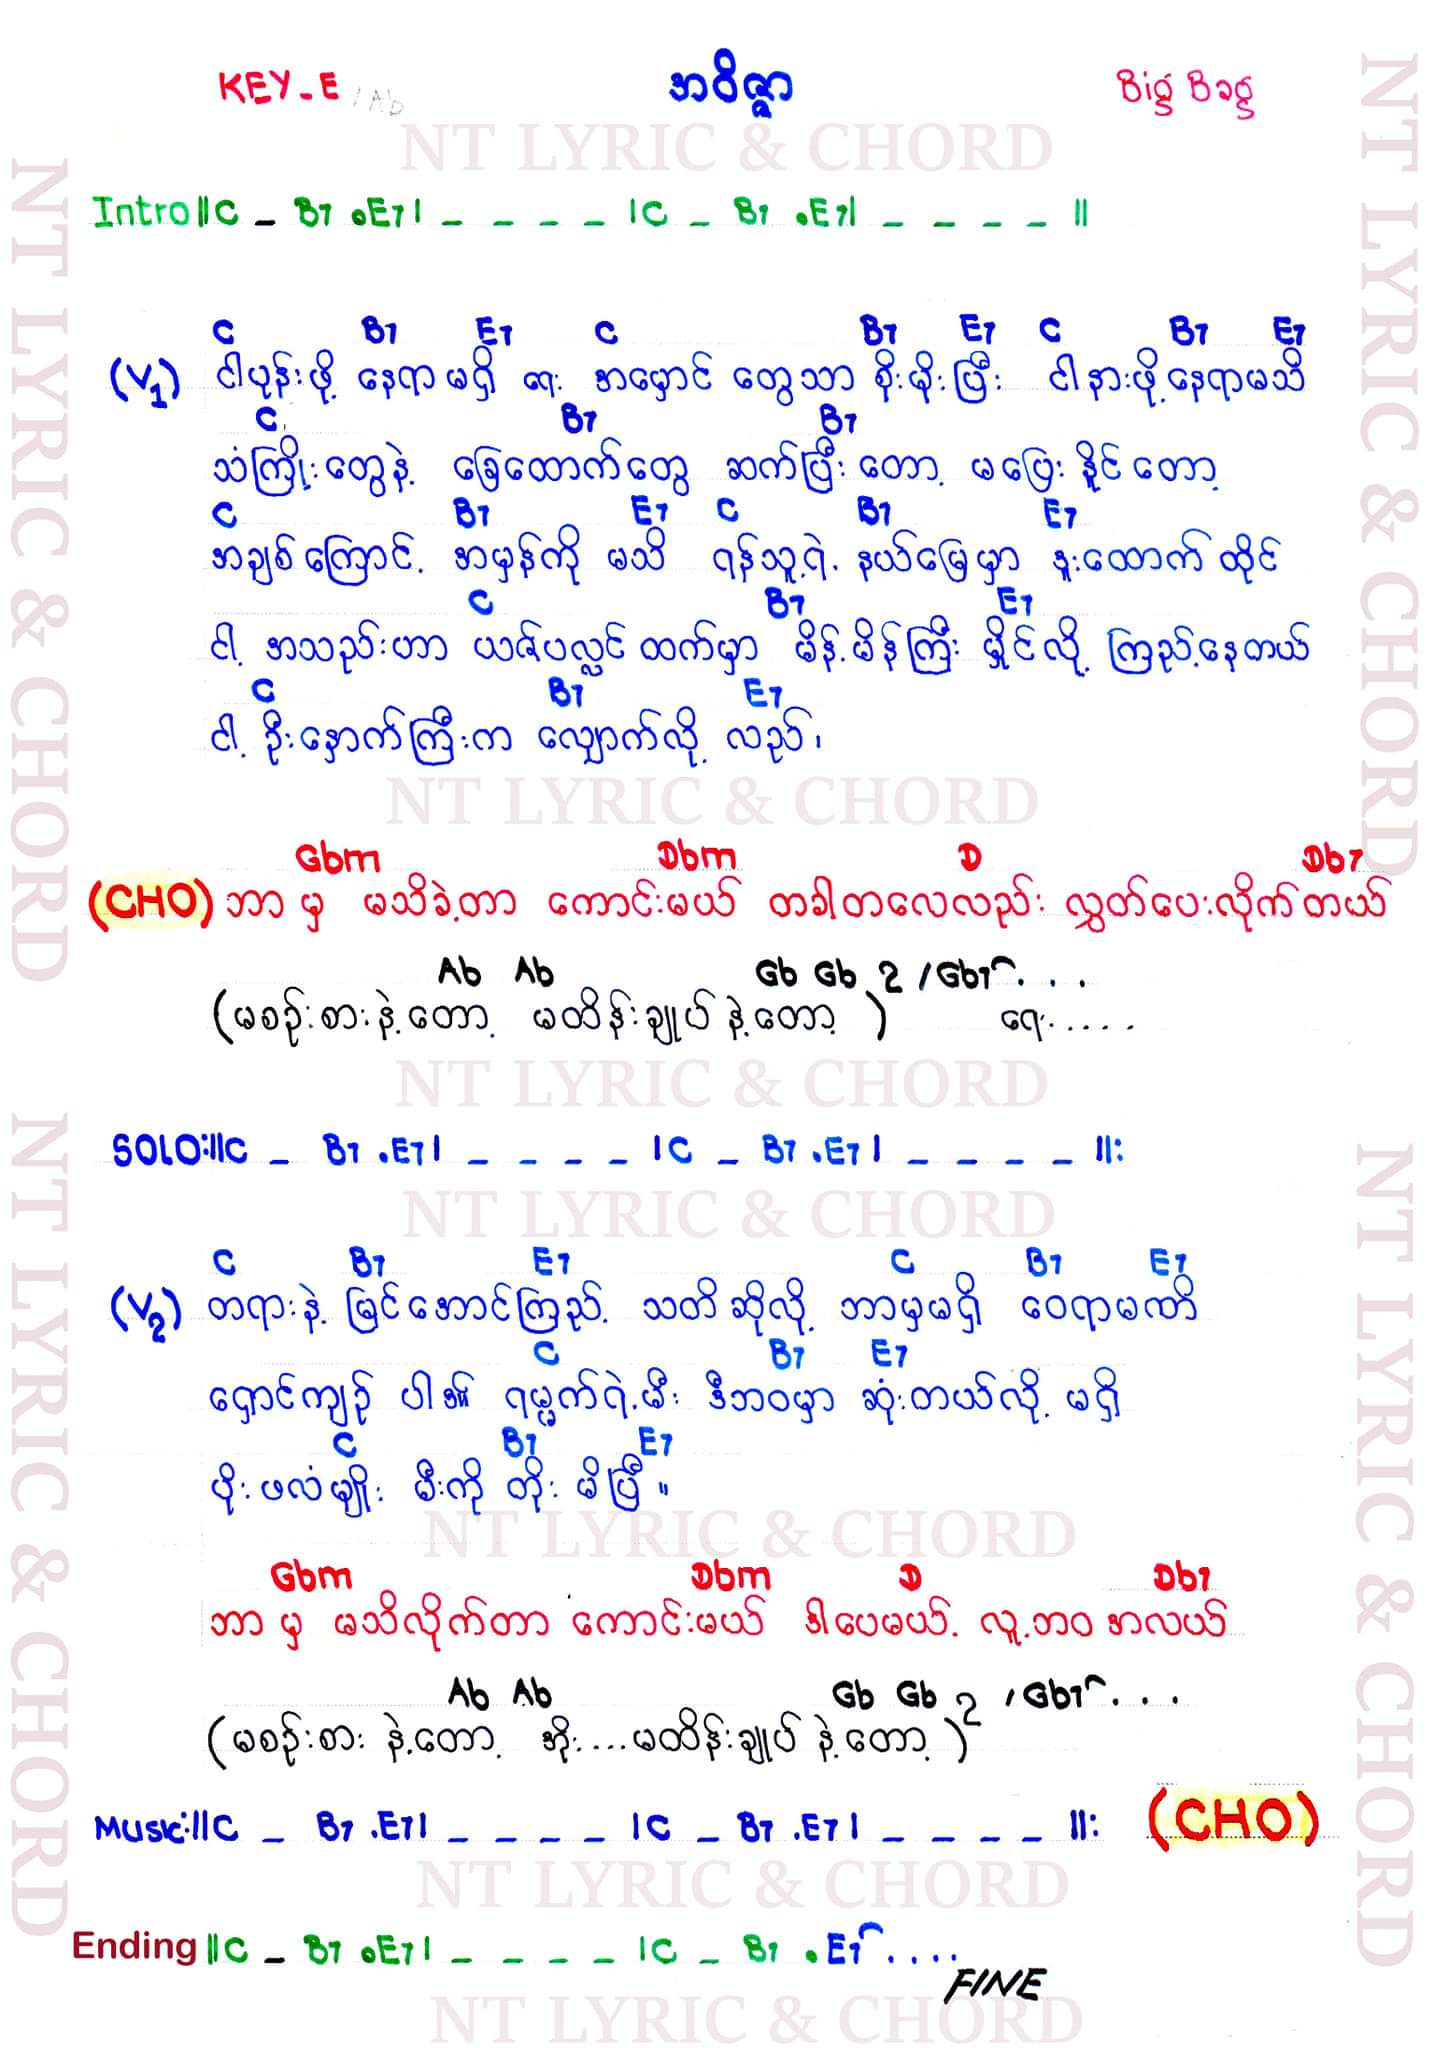 KEY-E /Ab
အဝိဇ္ဇာ
Big Bag
NT LYRIC & CHORD
Intro ||C _ B7 .E7| _ _ _ _ |C _ B7 .E7| _ _ _ _ ||
C B7 E7 C B7 E7 C B7 E7
(V1) ငါပုန်းဖို့ နေရာမရှိ ရေး အမှောင် တွေသာ စိုးမိုးပြီး ငါနားဖို့ နေရာမသိ
C B7 B7
သံကြိုးတွေနဲ့ ခြေထောက်တွေ ဆက်ပြီးတော့ မပြေးနိုင်တော့
C B7 E7 C B7 E7
အချစ်ကြောင့် အမှန်ကို မသိ ရန်သူ့ရဲ့ နယ်မြေမှာ ဒူးထောက်ထိုင်
C B7 E7
ငါ့ အသည်းဟာ ယဇ်ပလ္လင်ထက်မှာ မိန့်မိန့်ကြီး မှိုင်လို့ ကြည့်နေတယ်
C B7 E7
ငါ့ ဦးနှောက်ကြီးက လျှောက်လို့ လည်၊
NT LYRIC & CHORD
Gbm Dbm D Db7
(CHO) ဘာမှ မသိခဲ့တာ ကောင်းမယ် တခါတလေလည်း လွှတ်ပေးလိုက်တယ်
Ab Ab Gb Gb 2 /Gb7 . . .
(မစဉ်းစားနဲ့တော့ မထိန်းချုပ်နဲ့တော့) ရေး.....
NT LYRIC & CHORD
SOLO:||C _ B7 .E7| _ _ _ _ |C _ B7 .E7| _ _ _ _ ||:
NT LYRIC & CHORD
C B7 E7 C B7 E7
(V2) တရားနဲ့ မြင်အောင်ကြည့် သတိဆိုလို့ ဘာမှမရှိ ဝေရာမဏိ
C B7 E7
ရှောင်ကျဉ် ပါ၏ ရမ္မက်ရဲ့မီး ဒီဘဝမှာ ဆုံးတယ်လို့ မရှိ
C B7 E7
ပိုးဖလံမျိုး မီးကို တိုးမိပြီ။
NT LYRIC & CHORD
Gbm Dbm D Db7
ဘာမှ မသိလိုက်တာ ကောင်းမယ် ဒါပေမယ့် လူ့ဘဝအလယ်
Ab Ab Gb Gb 2 /Gb7 . . .
(မစဉ်းစားနဲ့တော့ အိုး...မထိန်းချုပ်နဲ့တော့)
Music:||C _ B7 .E7| _ _ _ _ |C _ B7 .E7| _ _ _ _ ||: (CHO)
NT LYRIC & CHORD
Ending ||C _ B7 .E7| _ _ _ _ |C _ B7 .E7 . . . .
FINE
NT LYRIC & CHORD
NT LYRIC & CHORD
NT LYRIC & CHORD
NT LYRIC & CHORD
NT LYRIC & CHORD